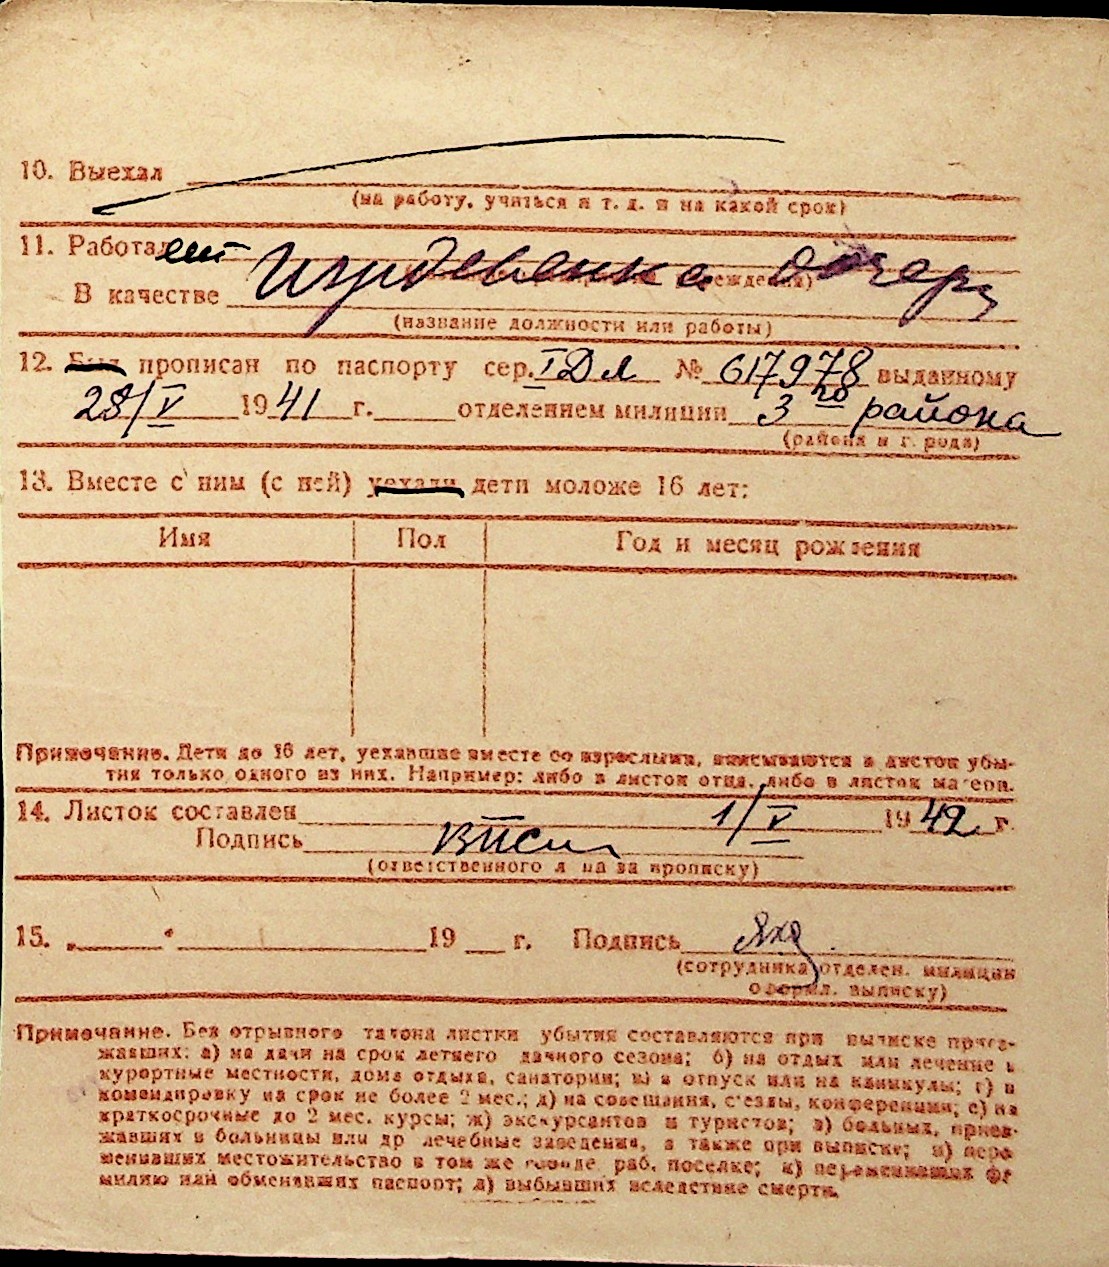 10. Выехал
(на работу, учиться и т. д. и на какой срок)
11. Работал ет Иждевенка дочери
В качестве
(название должности или работы)
12. Был прописан по паспорту сер. I ДЛ № 617978 выданному
28/V 1941 г. отделением милиции 3го района
(района и города)
13. Вместе с ним (с ней) уехали дети моложе 16 лет:
Имя Пол Год и месяц рождения
Примечание. Дети до 16 лет, уехавшие вместе со взрослыми, вписываются в листок убы-
тия только одного из них. Например: либо в листок отца, либо в листок матери.
14. Листок составлен 1/V 1942 г.
Подпись
(ответственного л ца за прописку)
15. " " 19 г. Подпись
(сотрудника отделен. милиции
оформл. выписку)
Примечание. Без отрывного талона листки убытия составляются при выписке приез-
жавших: а) на дачи на срок летнего дачного сезона; б) на отдых или лечение в
курортные местности, дома отдыха, санатории; в) в отпуск или на каникулы; г) в
командировку на срок не более 2 мес.; д) на совещания, съезды, конференции; е) на
краткосрочные до 2 мес. курсы; ж) экскурсантов и туристов; з) больных, приез-
жавших в больницы или др лечебные заведения, а также при выписке; и) пере
менивших местожительство в том же городе, раб. поселке; к) переменивших фа
милию или обменявших паспорт; л) выбывших вследствие смерти.